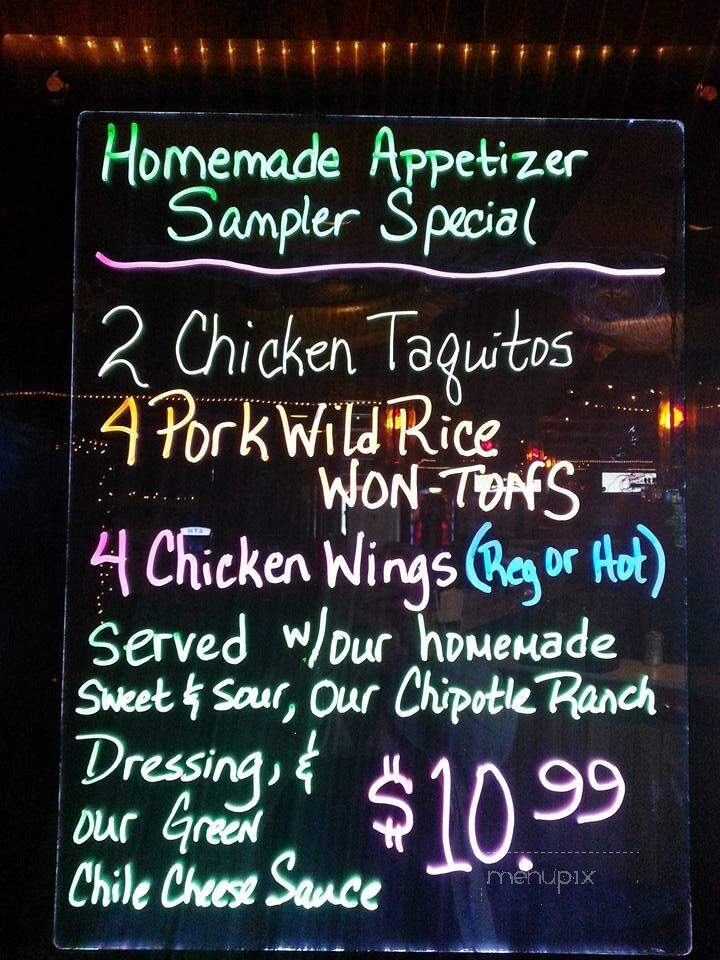 Homemade Appetizer
Sampler Special
2 Chicken Taquitos
4 Pork Wild Rice
WON-TONS
4 Chicken Wings (Reg or Hot)
Served w/our homemade
Sweet & Sour, Our Chipotle Ranch
Dressing, &
our Green
Chile Cheese Sauce
$10.99
menupix
MTA